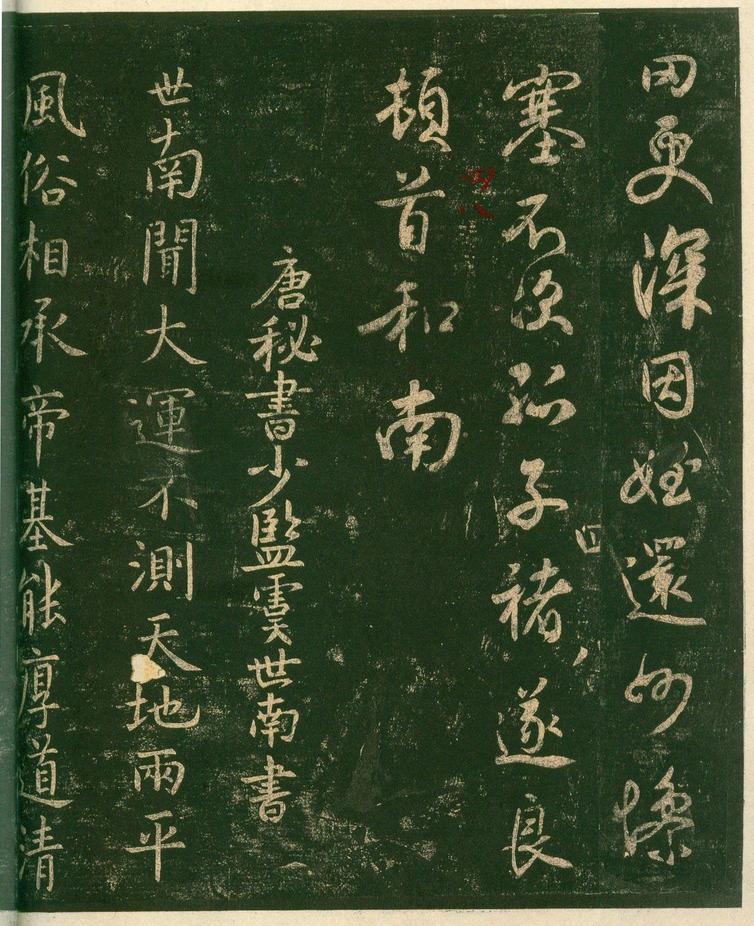 罔更深因姪還州慘
塞不次孤子褚遂良
四
頓首和南
唐秘書少監虞世南書
世南聞大運不測天地兩平
風俗相承帝基能厚道清